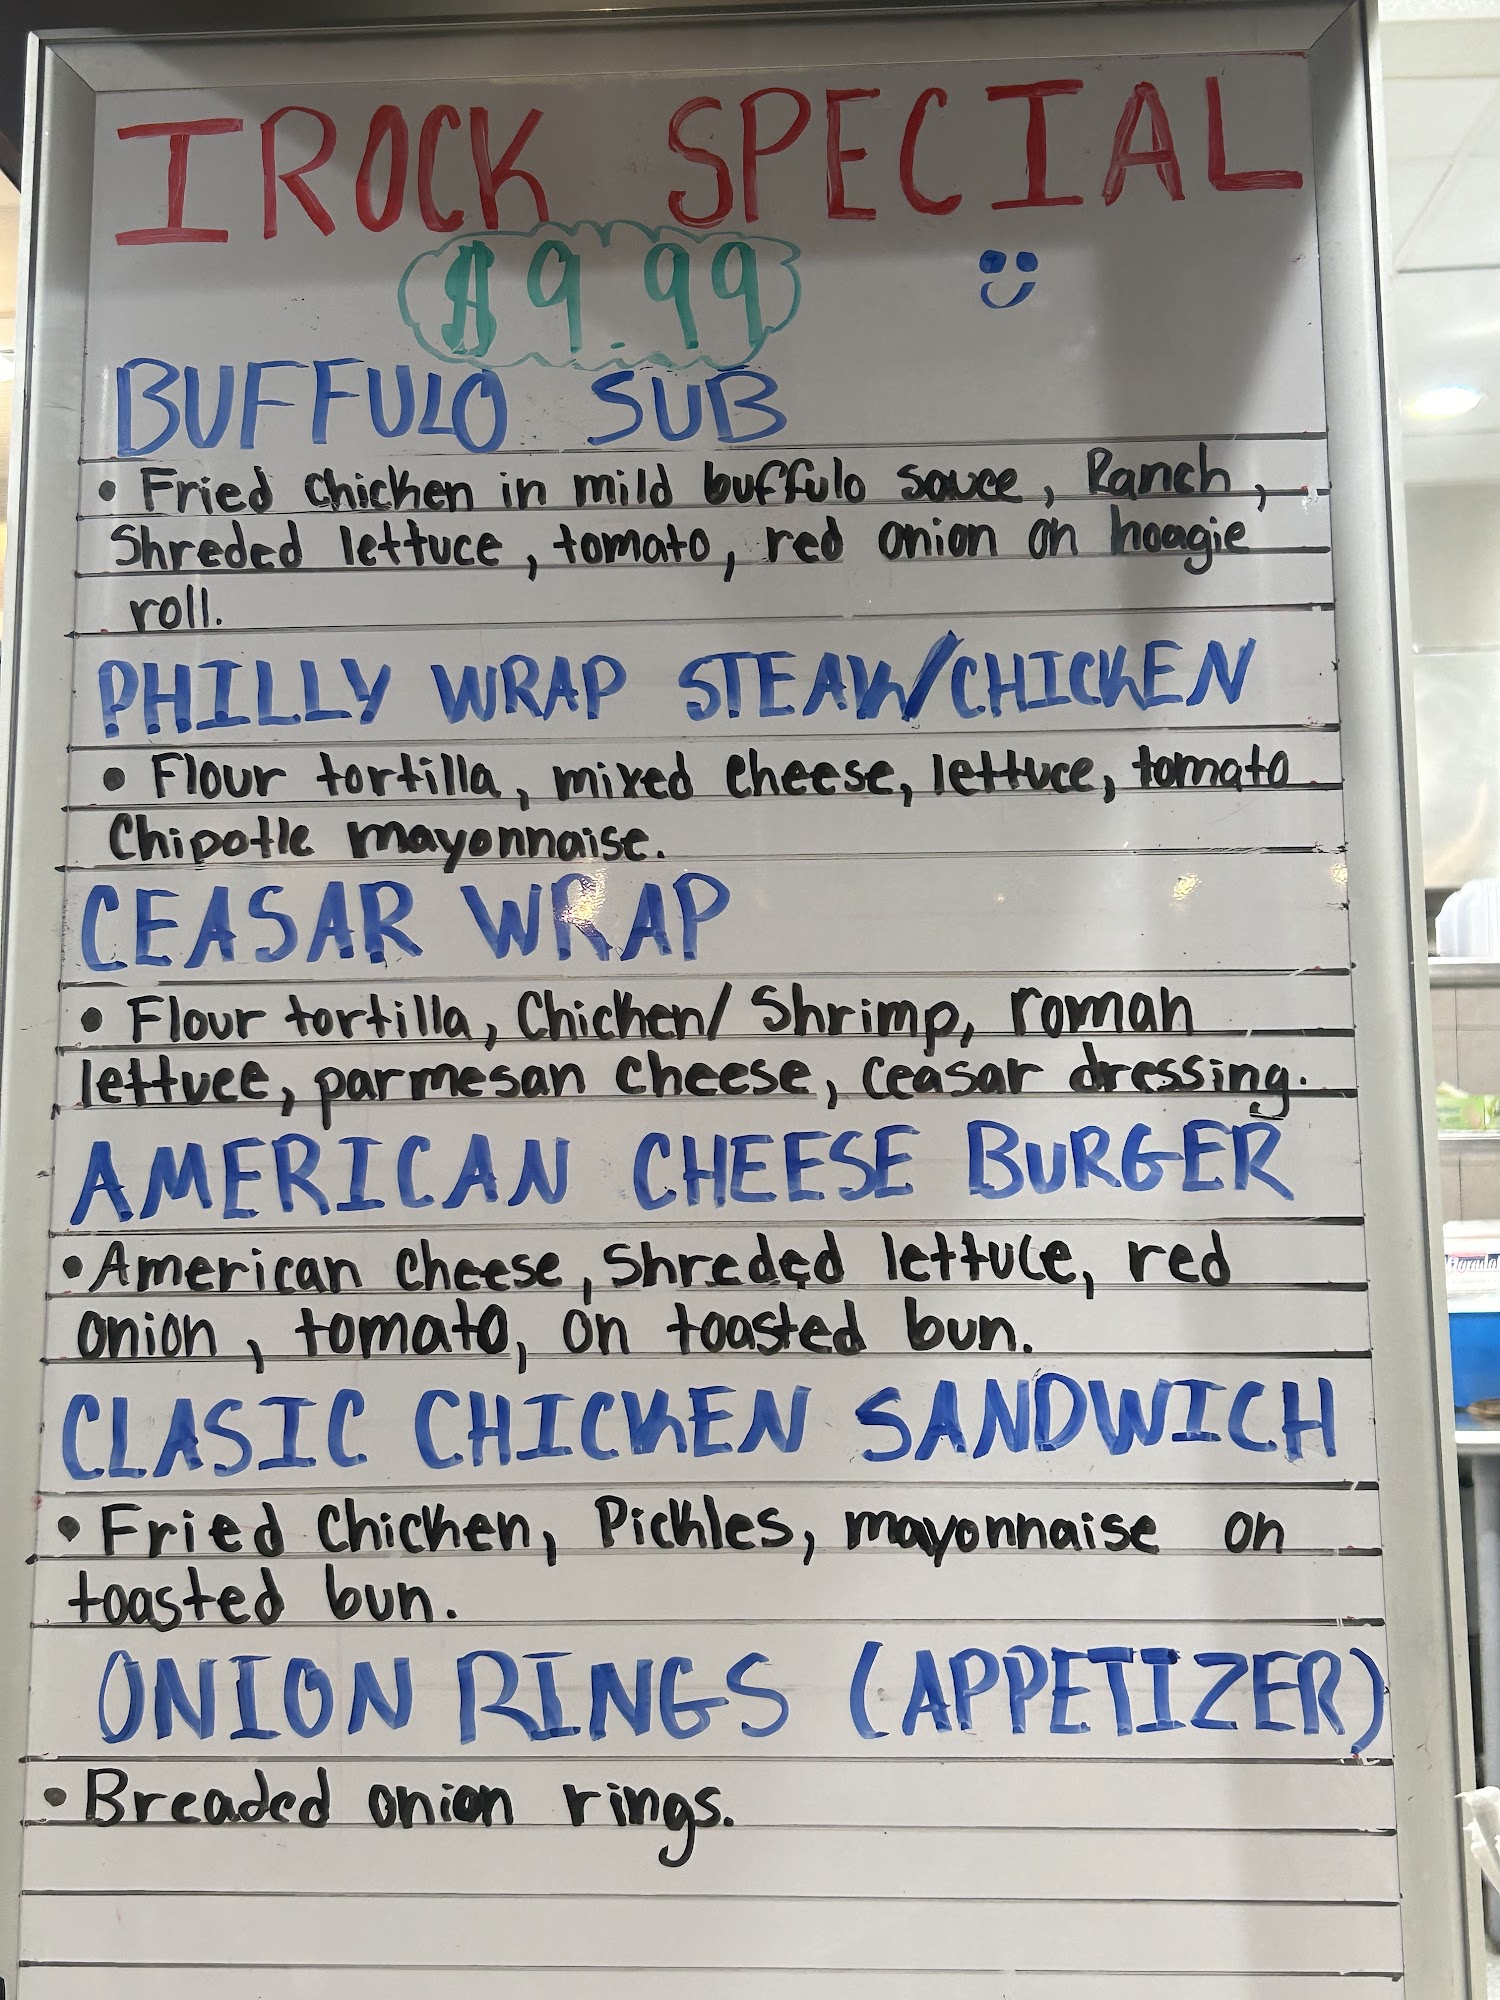 IROCK SPECIAL
$9.99
BUFFULO SUB
• Fried chicken in mild buffulo sauce, Ranch,
Shreded lettuce, tomato, red onion on hoagie
roll.
PHILLY WRAP STEAK/CHICKEN
• Flour tortilla, mixed cheese, lettuce, tomato
Chipotle mayonnaise.
CEASAR WRAP
• Flour tortilla, Chicken/ Shrimp, roman
lettuce, parmesan cheese, ceasar dressing.
AMERICAN CHEESE BURGER
• American cheese, Shreded lettuce, red
onion, tomato, on toasted bun.
CLASIC CHICKEN SANDWICH
• Fried Chicken, Pickles, mayonnaise on
toasted bun.
ONION RINGS (APPETIZER)
• Breaded onion rings.